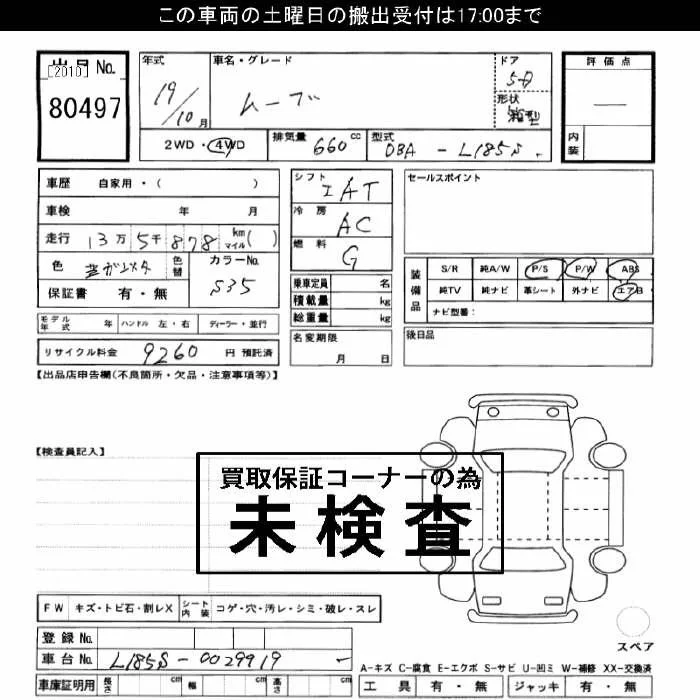 この車両の土曜日の搬出受付は17:00まで
出品No.
[2010]
80497
年式
19/10月
車名・グレード
ムーブ
ドア
5D
形状
箱型
評価点
内装
2WD・4WD
排気量 660cc
型式 DBA-L185S
車歴 自家用・( )
車検 年 月
走行 13万5千878 km マイル( )
色
色替
カラーNo.
S35
保証書 有・無
シフト IAT
冷房 AC
燃料 G
セールスポイント
装備品
S/R 純A/W P/S P/W ABS
純TV 純ナビ 革シート 外ナビ エアB
ナビ型番:
乗車定員 名
積載量 kg
総重量 kg
モデル年式 年 ハンドル 左・右 ディーラー・並行
リサイクル料金 9260 円 預託済
名変期限
月 日
後日品
【出品店申告欄(不良箇所・欠品・注意事項等)】
【検査員記入】
買取保証コーナーの為
未検査
FW キズ・トビ石・割レX シート内装 コゲ・穴・汚レ・シミ・破レ・スレ
登録No.
車台No. L185S-0029919
スペア
A-キズ C-腐食 E-エクボ S-サビ U-凹ミ W-補修 XX-交換済
車庫証明用 長さ cm 幅 cm 高さ cm
工具 有・無 ジャッキ 有・無